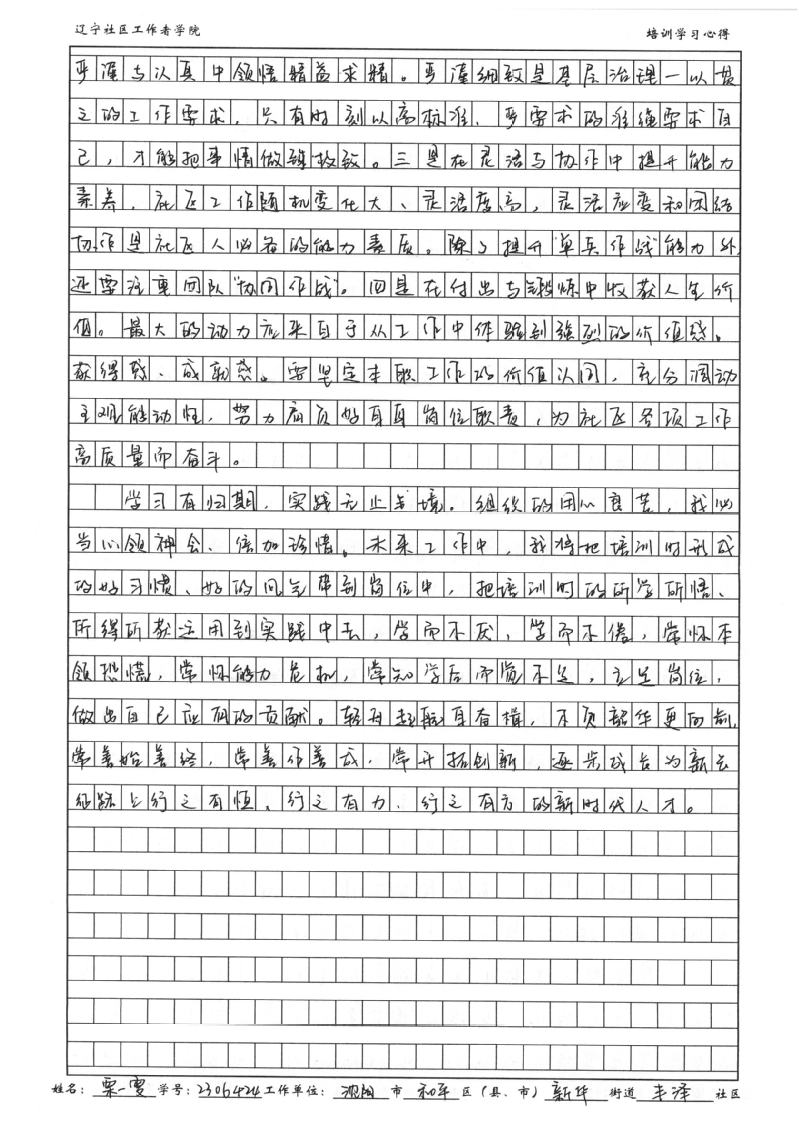 辽宁社区工作者学院 培训学习心得
严谨与认真中领悟精益求精。严谨细致是基层治理一以贯
之的工作要求,只有时刻以高标准、严要求的准绳要求自
己,才能把事情做

极致。三是在灵活与协作中提升能力
素养,社区工作随机变化大、灵活度高,灵活应变和团结
协作是社区人必备的能力素质。除了提升“单兵作战”能力外,
还要注重团队“协同作战”。四是在付出与锻炼中收获人生价
值。最大的动力应来自于从工作中体验到强烈的价值感。
获得感、成就感。要坚定本职工作的价值认同,充分调动
主观能动性,努力肩负好自身岗位职责,为社区各项工作
高质量而奋斗。
学习有归期,实践无止境。组织的用心良苦,我必
当心领神会、倍加珍惜。未来工作中,我将把培训时形成
的好习惯、好的风气带到岗位中,把培训时的所学所悟、
所得所获运用到实践中去,学而不厌,学而不倦,常怀本
领恐慌,常怀能力危机,常知学后而觉不足,立足岗位,
做出自己应有的贡献。轻舟起航自有楫,不负韶华更向前,
常善始善终,常善作善成,常开拓创新,逐步成长为新长
征路上行之有恒、行之有力、行之有方的新时代人才。
姓名: 栗一雯 学号: 2306424 工作单位: 沈阳 市 和平 区(县、市) 新华 街道 丰泽 社区